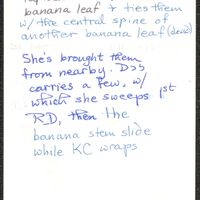 banana leaf & ties them
w/ the central spine of
another banana leaf (dead)
She's brought them
from nearby. DSS
carries a few, w/
which she sweeps 1st
RD, then the
banana stem slide
while KC wraps